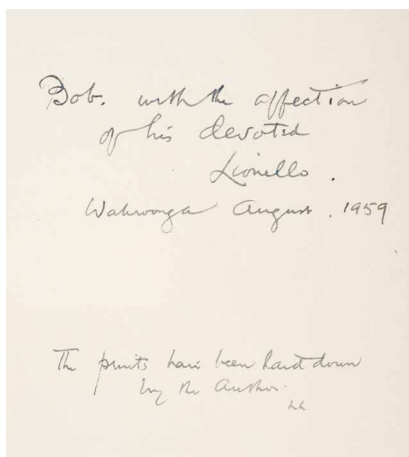 Bob. with the affection
of his devoted
Lionello.
Wahroonga August. 1959
The prints have been laid down
by the Author.